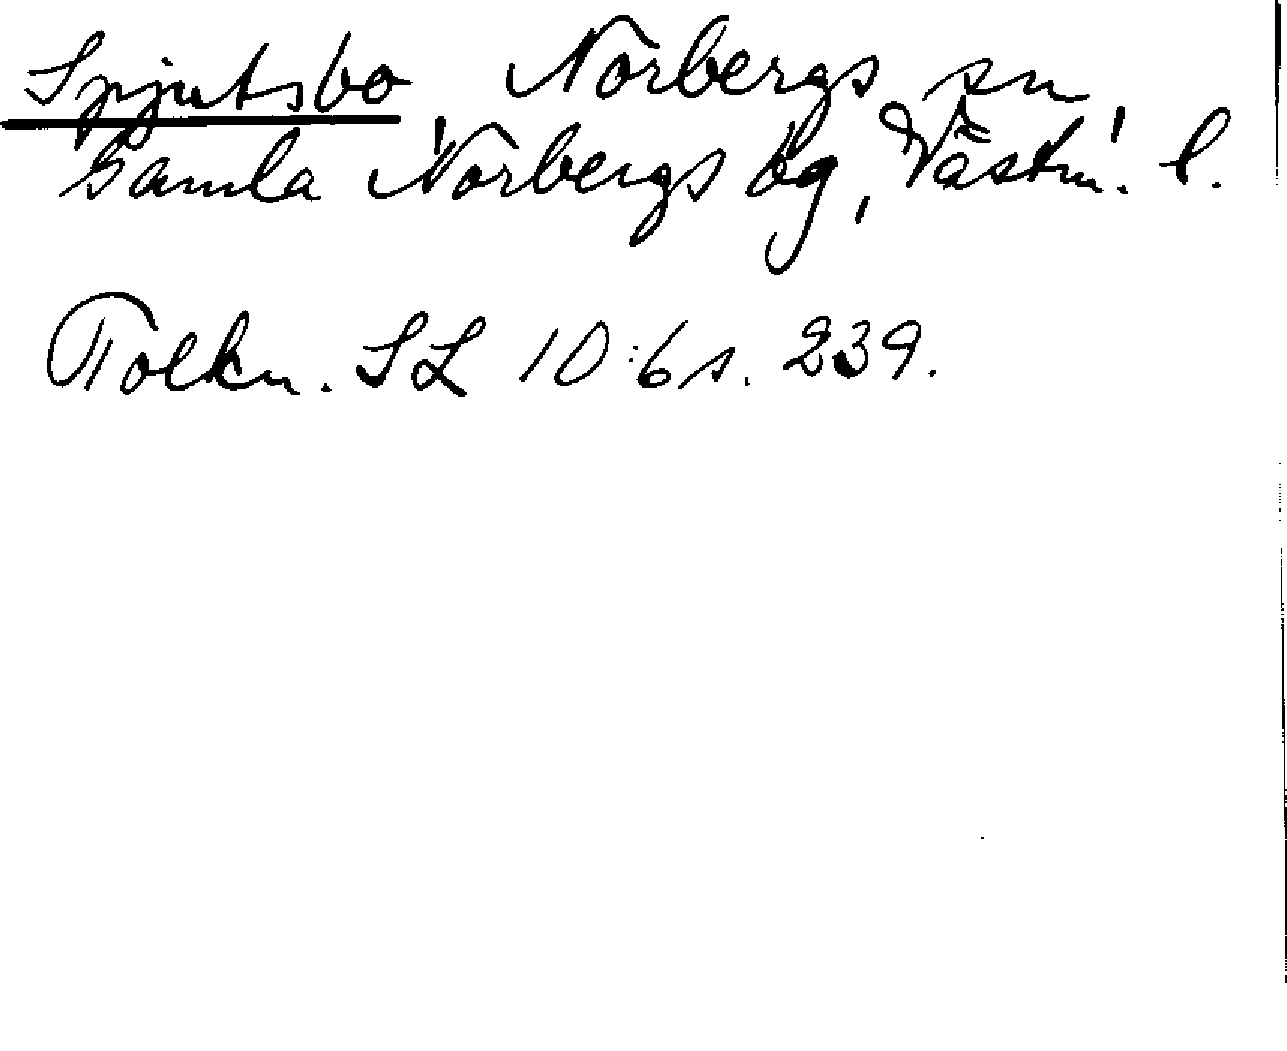 Spjutsbo, Norbergs sn,
Gamla Norbergs bg, Västm. l.
Tolkn. SL 10:6 s. 239.